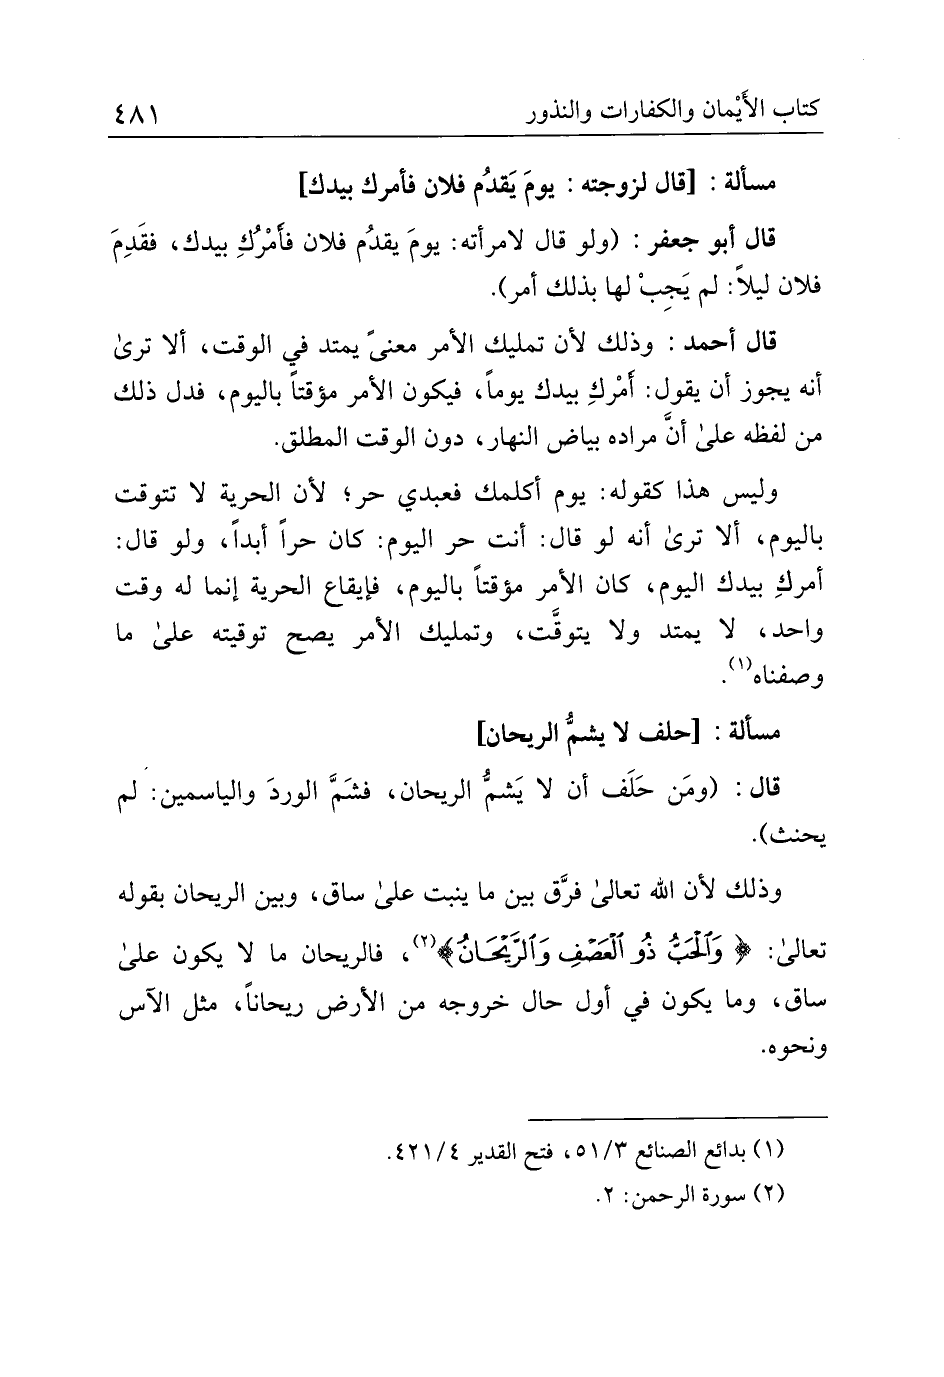 كتاب الأَيْمان والكفارات والنذور ٤٨١
مسألة : [قال لزوجته : يومَ يَقدُم فلان فأمرك بيدك]
قال أبو جعفر : (ولو قال لامرأته: يومَ يقدُم فلان فأَمْرُكِ بيدك، فقَدِمَ
فلان ليلاً: لم يَجِبْ لها بذلك أمر).
قال أحمد : وذلك لأن تمليك الأمر معنىً يمتد في الوقت، ألا ترىٰ
أنه يجوز أن يقول: أَمْركِ بيدك يوماً، فيكون الأمر مؤقتاً باليوم، فدل ذلك
من لفظه علىٰ أنَّ مراده بياض النهار، دون الوقت المطلق.
وليس هذا كقوله: يوم أكلمك فعبدي حر؛ لأن الحرية لا تتوقت
باليوم، ألا ترىٰ أنه لو قال: أنت حر اليوم: كان حراً أبداً، ولو قال:
أمركِ بيدك اليوم، كان الأمر مؤقتاً باليوم، فإيقاع الحرية إنما له وقت
واحد، لا يمتد ولا يتوقَّت، وتمليك الأمر يصح توقيته علىٰ ما
وصفناه(١).
مسألة : [حلف لا يشمُّ الريحان]
قال : (ومَن حَلَف أن لا يَشمُّ الريحان، فشَمَّ الوردَ والياسمين: لم
يحنث).
وذلك لأن الله تعالىٰ فرَّق بين ما ينبت علىٰ ساق، وبين الريحان بقوله
تعالىٰ: ﴿ وَٱلْحَبُّ ذُو ٱلْعَصْفِ وَٱلرَّيْحَانُ﴾(٢)، فالريحان ما لا يكون علىٰ
ساق، وما يكون في أول حال خروجه من الأرض ريحاناً، مثل الآس
ونحوه.
(١) بدائع الصنائع ٥١/٣، فتح القدير ٤٢١/٤.
(٢) سورة الرحمن: ٢.